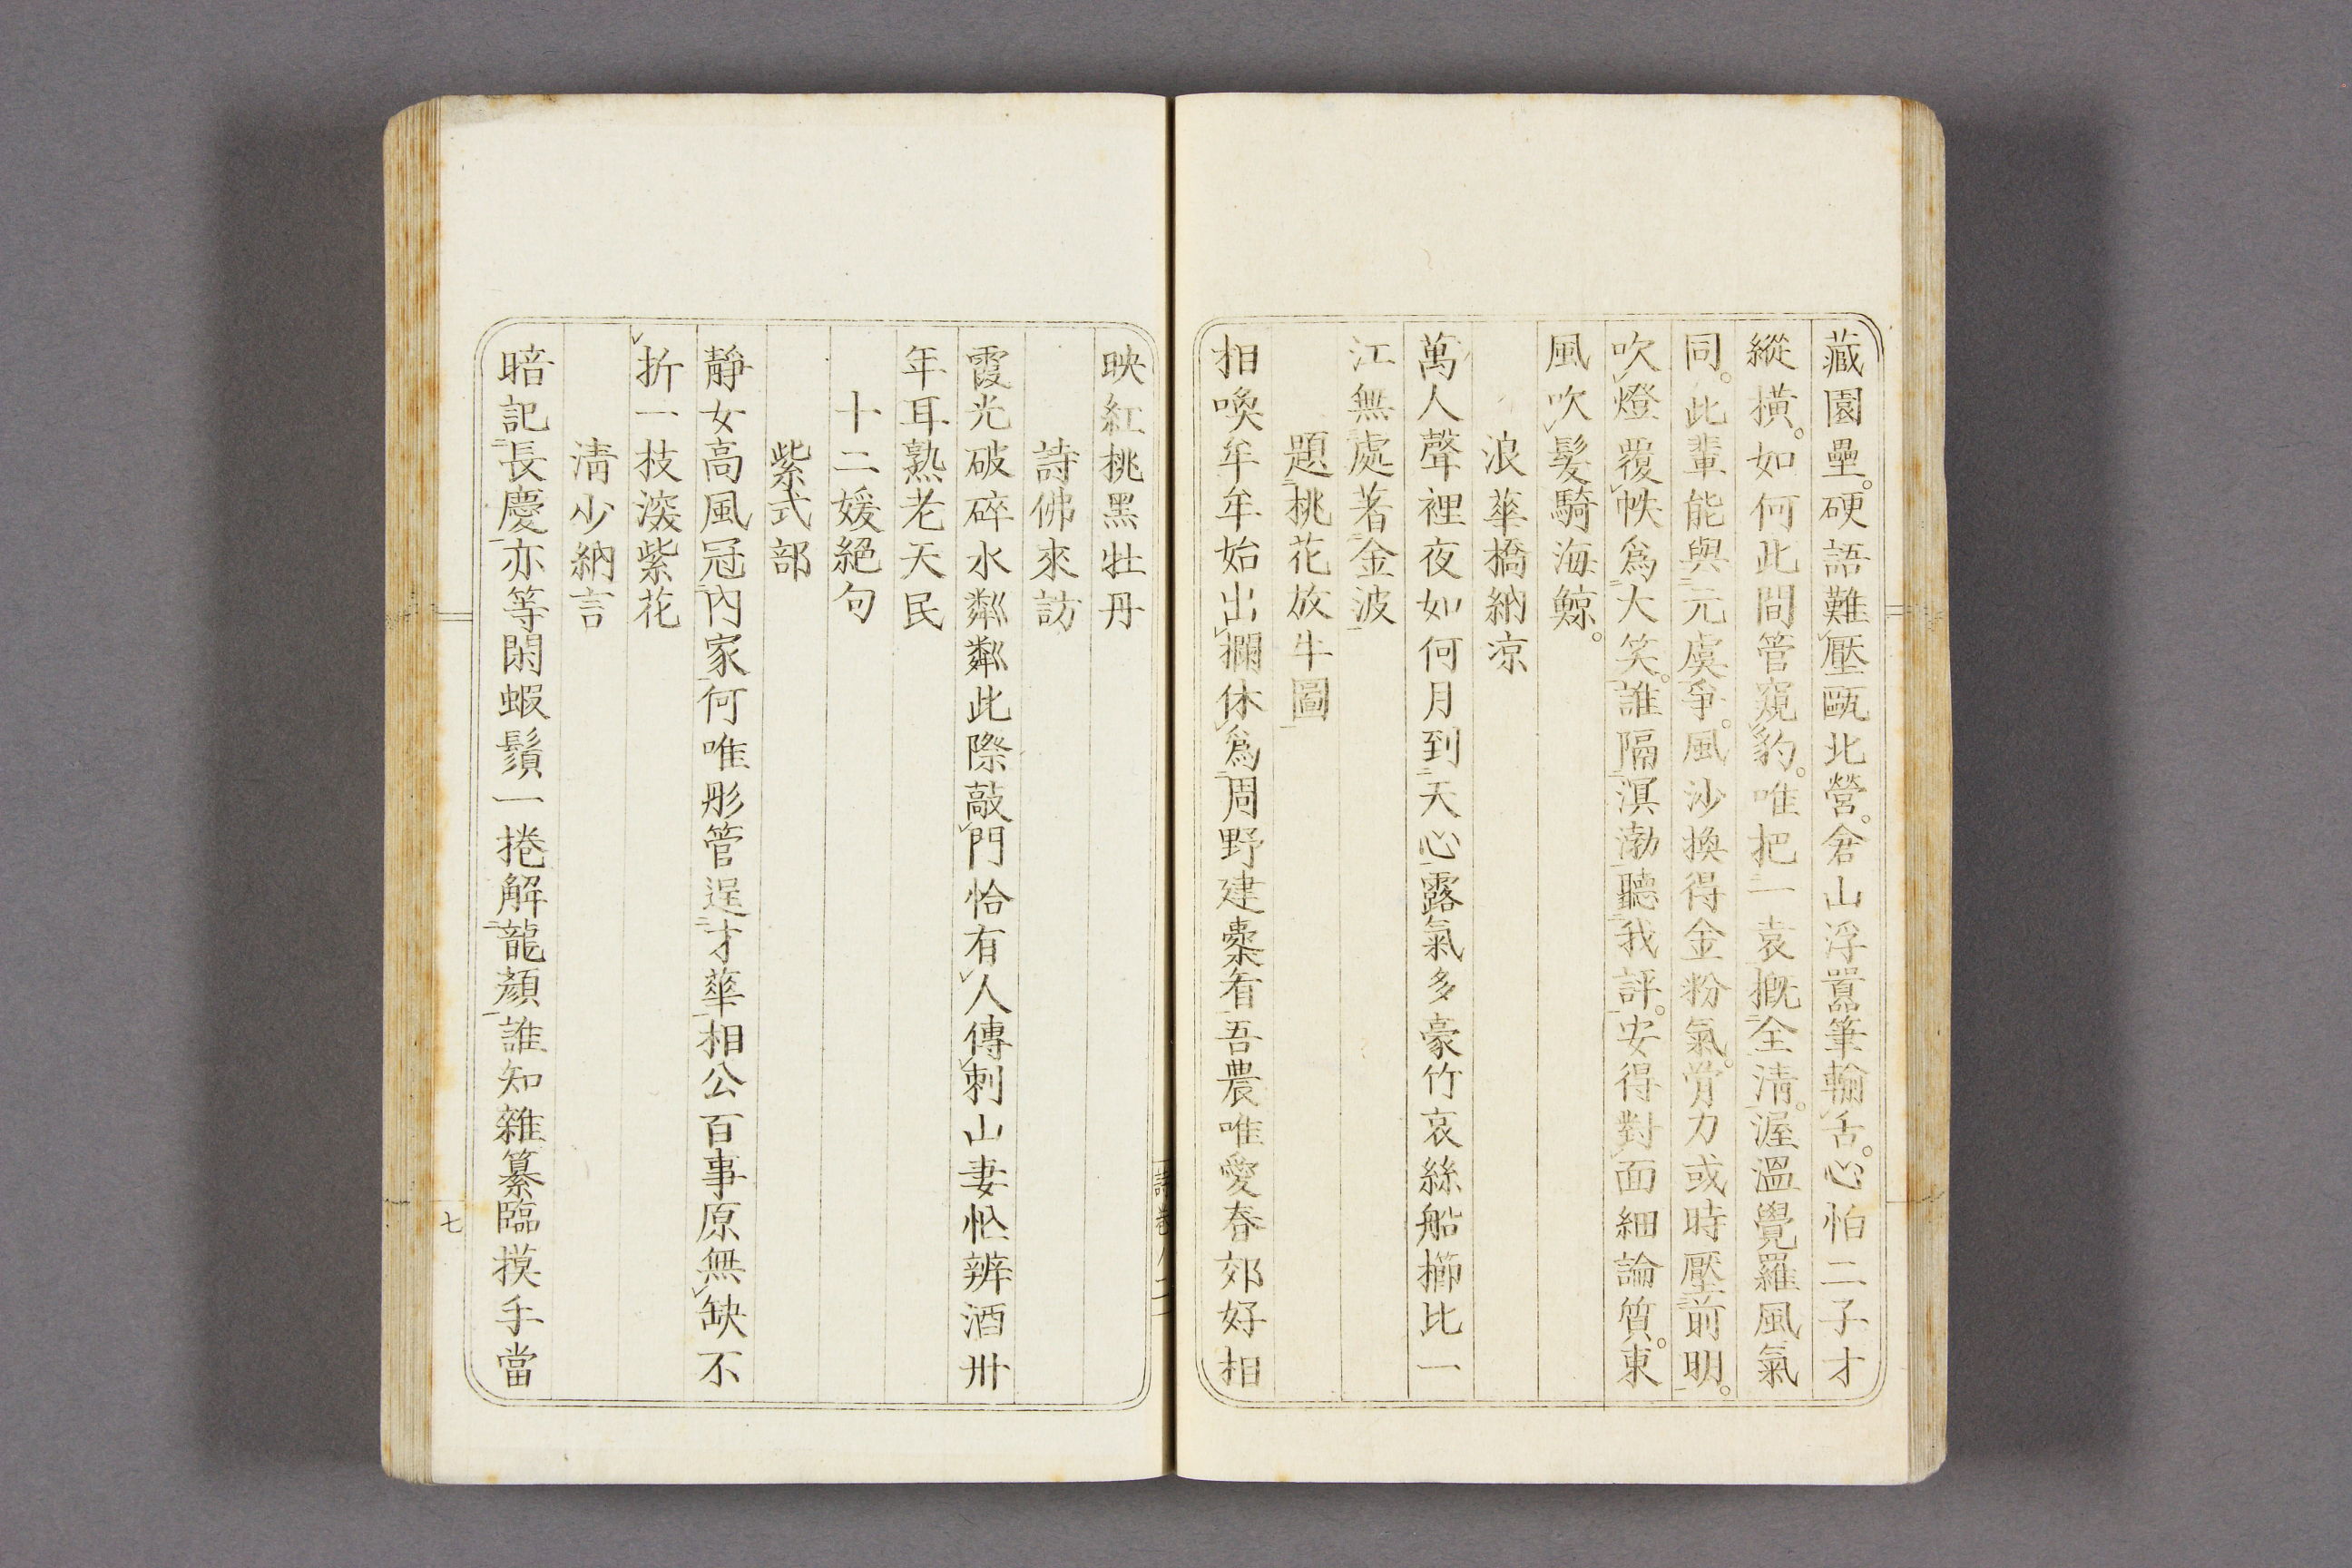 藏園壘。硬語難壓甌北營。倉山浮囂筆輸舌。心怕二子才
縱橫。如何此間管窺豹。唯把一袁概全淸。渥溫覺羅風氣
同。此輩能與元虞爭。風沙換得金粉氣。骨力或時壓前明。
吹燈覆帙爲大笑。誰隔溟渤聽我評。安得對面細論質。東
風吹髮騎海鯨。
浪華橋納凉
萬人聲裡夜如何月到天心露氣多豪竹哀絲船櫛比一
江無處著金波
題桃花放牛圖
相喚牟牟始出攔休爲周野建櫜看吾農唯愛春郊好相
映紅桃黑牡丹
詩佛來訪
霞光破碎水粼粼此際敲門恰有人傳刺山妻忙辨酒卅
年耳熟老天民
十二媛絕句
紫式部
靜女高風冠內家何唯彤管逞才華相公百事原無缺不
折一枝深紫花
淸少納言
暗記長慶亦等閑蝦鬚一捲解龍顏誰知雜纂臨摸手當
七